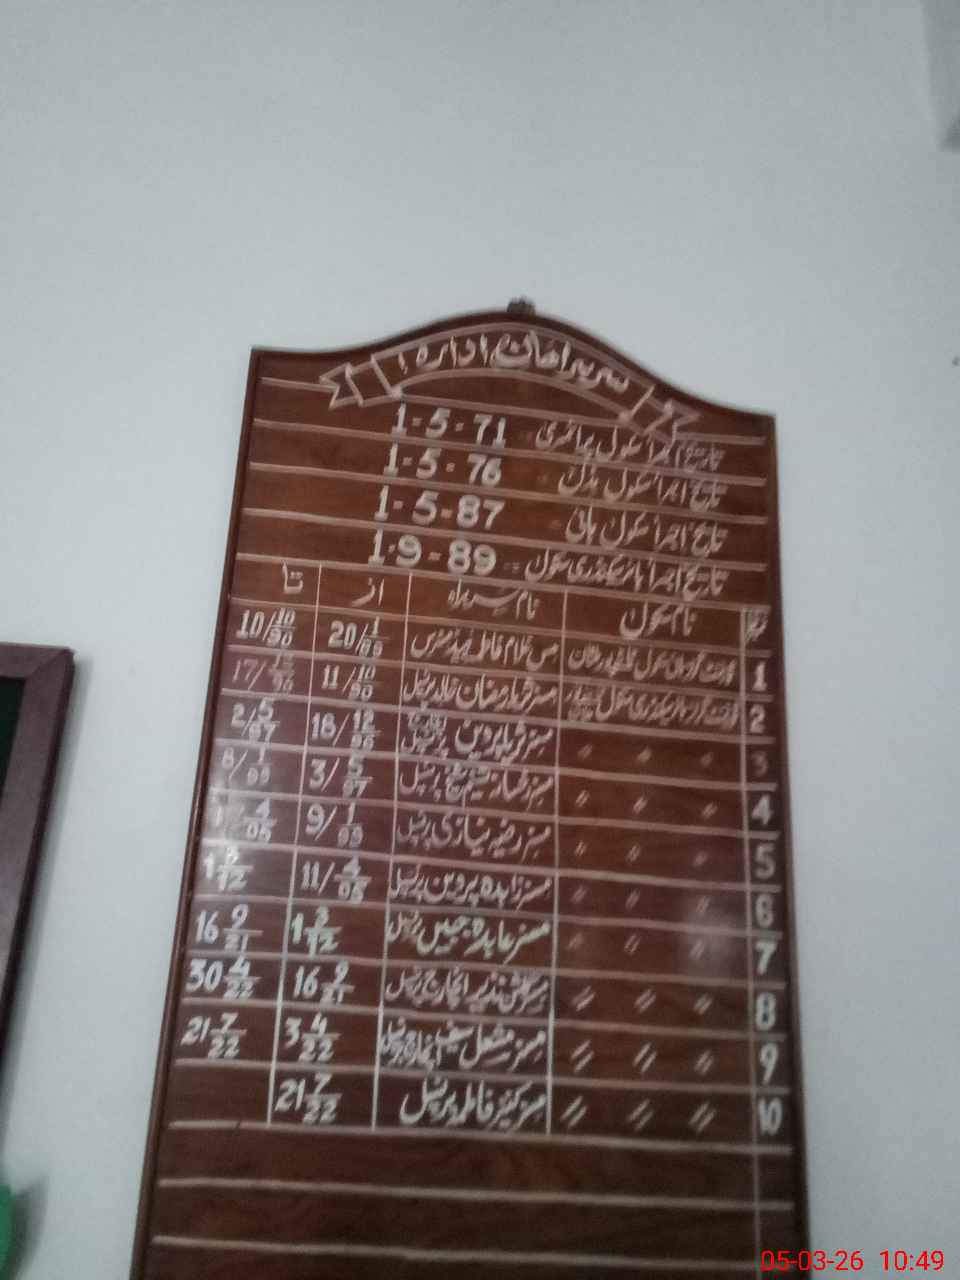 سربراھان ادارہ
تاریخ اجرا سکول پرائمری 1-5-71
تاریخ اجرا سکول مڈل 1-5-76
تاریخ اجرا سکول ہائی 1-5-87
تاریخ اجرا ہائر سیکنڈری سکول 1-9-89
نام سکول نام سربراہ از تا
1 مس غلام فاطمہ ہیڈ مسٹرس 20/1/89 10/10/90
2 مسز پرنسپل 11/10/90 17/12/96
3 〃 〃 〃 مسز پروین 18/12/96 2/5/97
4 〃 〃 〃 مسز پرنسپل 3/5/97 8/1/99
5 〃 〃 〃 مسز رضیہ نیازی پرنسپل 9/1/99 4/05
6 〃 〃 〃 مسز زاہدہ پروین پرنسپل 11/4/05 1 3/12
7 〃 〃 〃 مسز عابدہ جبیں پرنسپل 1 3/12 16 9/21
8 〃 〃 〃 مسز نذیر انچارج پرنسپل 16 9/21 30 4/22
9 〃 〃 〃 مسز مشعل انچارج پرنسپل 3 4/22 21 7/22
10 〃 〃 〃 مسز کنیز فاطمہ پرنسپل 21 7/22
05-03-26 10:49